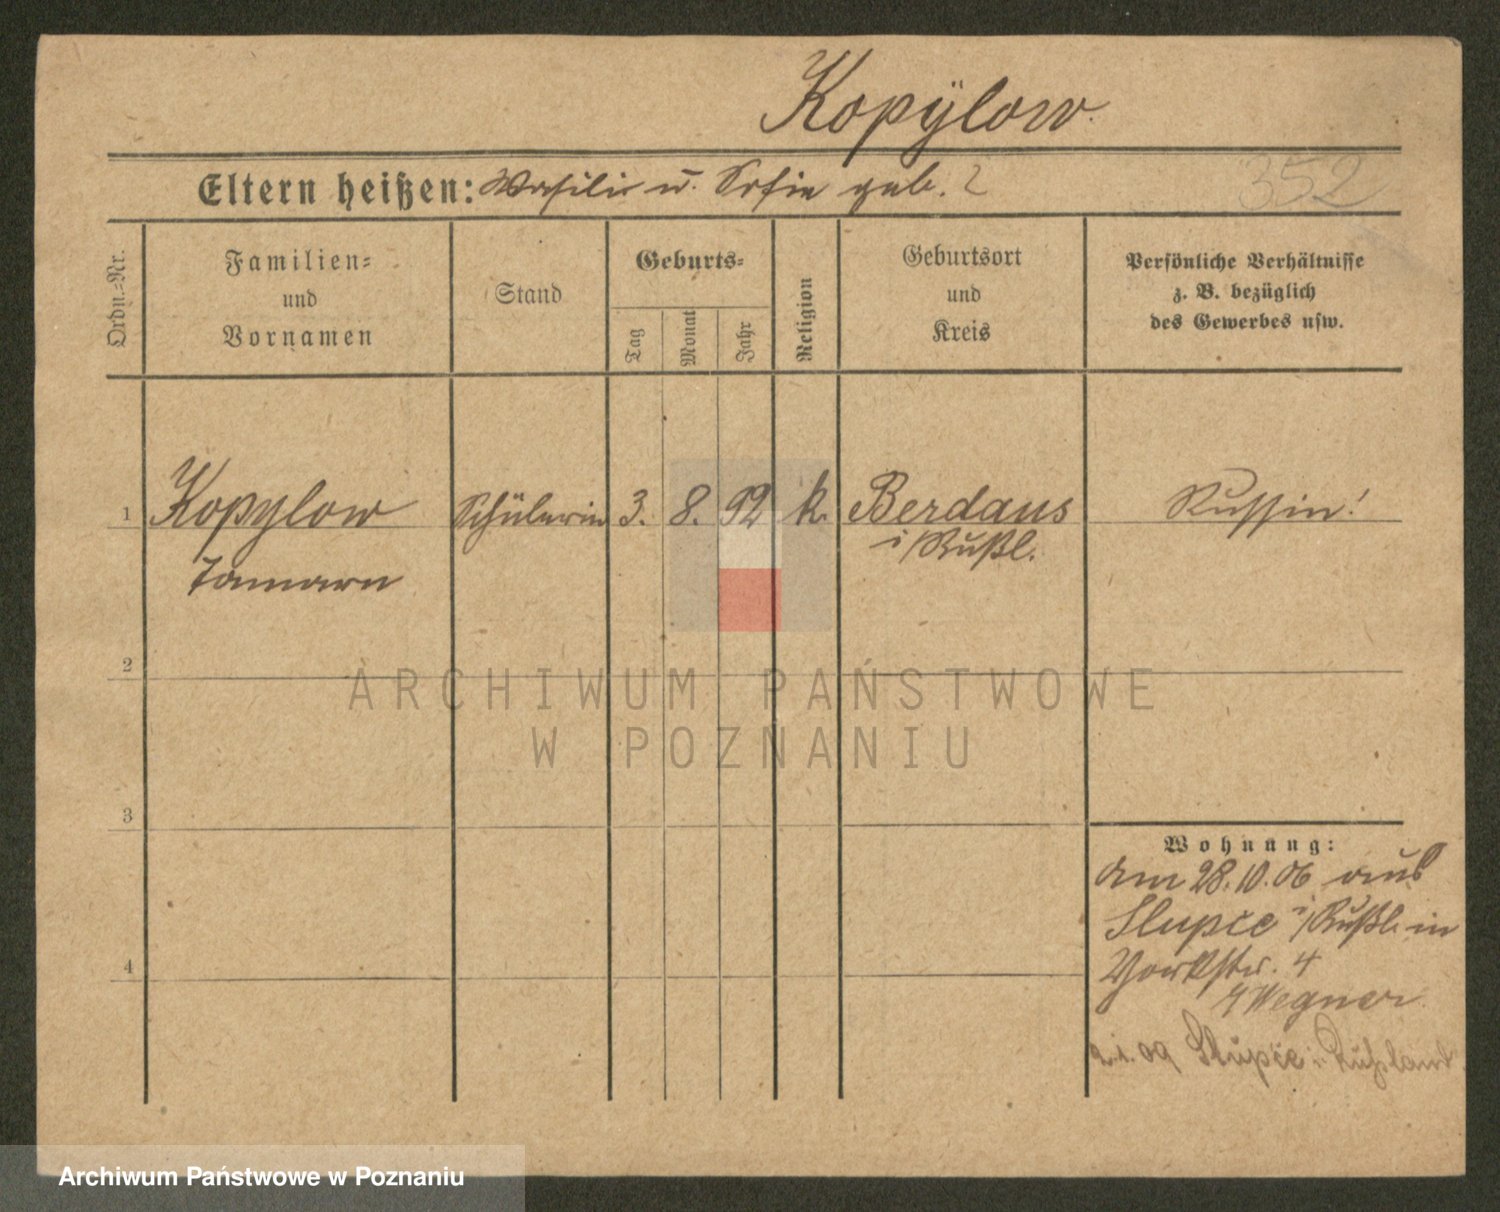 Kopÿlow.
Eltern heißen: Wasilii u. Sofie geb. ?
352
Ordn.-Nr.
Familien-
und
Vornamen
Stand
Geburts-
Tag
Monat
Jahr
Religion
Geburtsort
und
Kreis
Persönliche Verhältnisse
z. B. bezüglich
des Gewerbes usw.
1 Kopylow Schülerin 3. 8. 92 k. Berdaus Russin!
Tamara i/Rußl.
2
3
4
Wohnung:
Am 28.10.06 aus
Slupce i/Rußl. in
Yorkstr. 4
b/Wegner
2.1.09 Slupce i. Rußland
ARCHIWUM PAŃSTWOWE
W POZNANIU
Archiwum Państwowe w Poznaniu